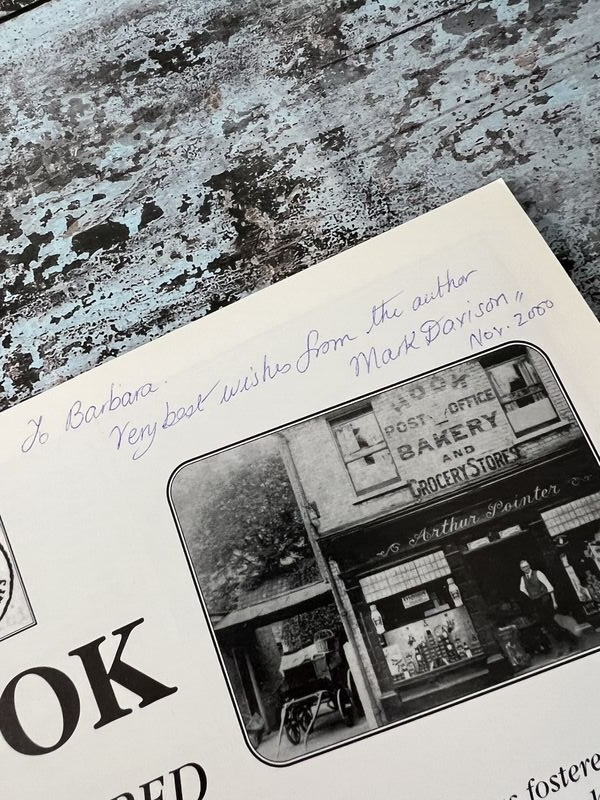 To Barbara.
Very best wishes from the author
Mark Davison,,
Nov. 2000
HOOK
POST OFFICE
BAKERY
AND
GROCERY STORES
Arthur Pointer
OK
RED
s fostere